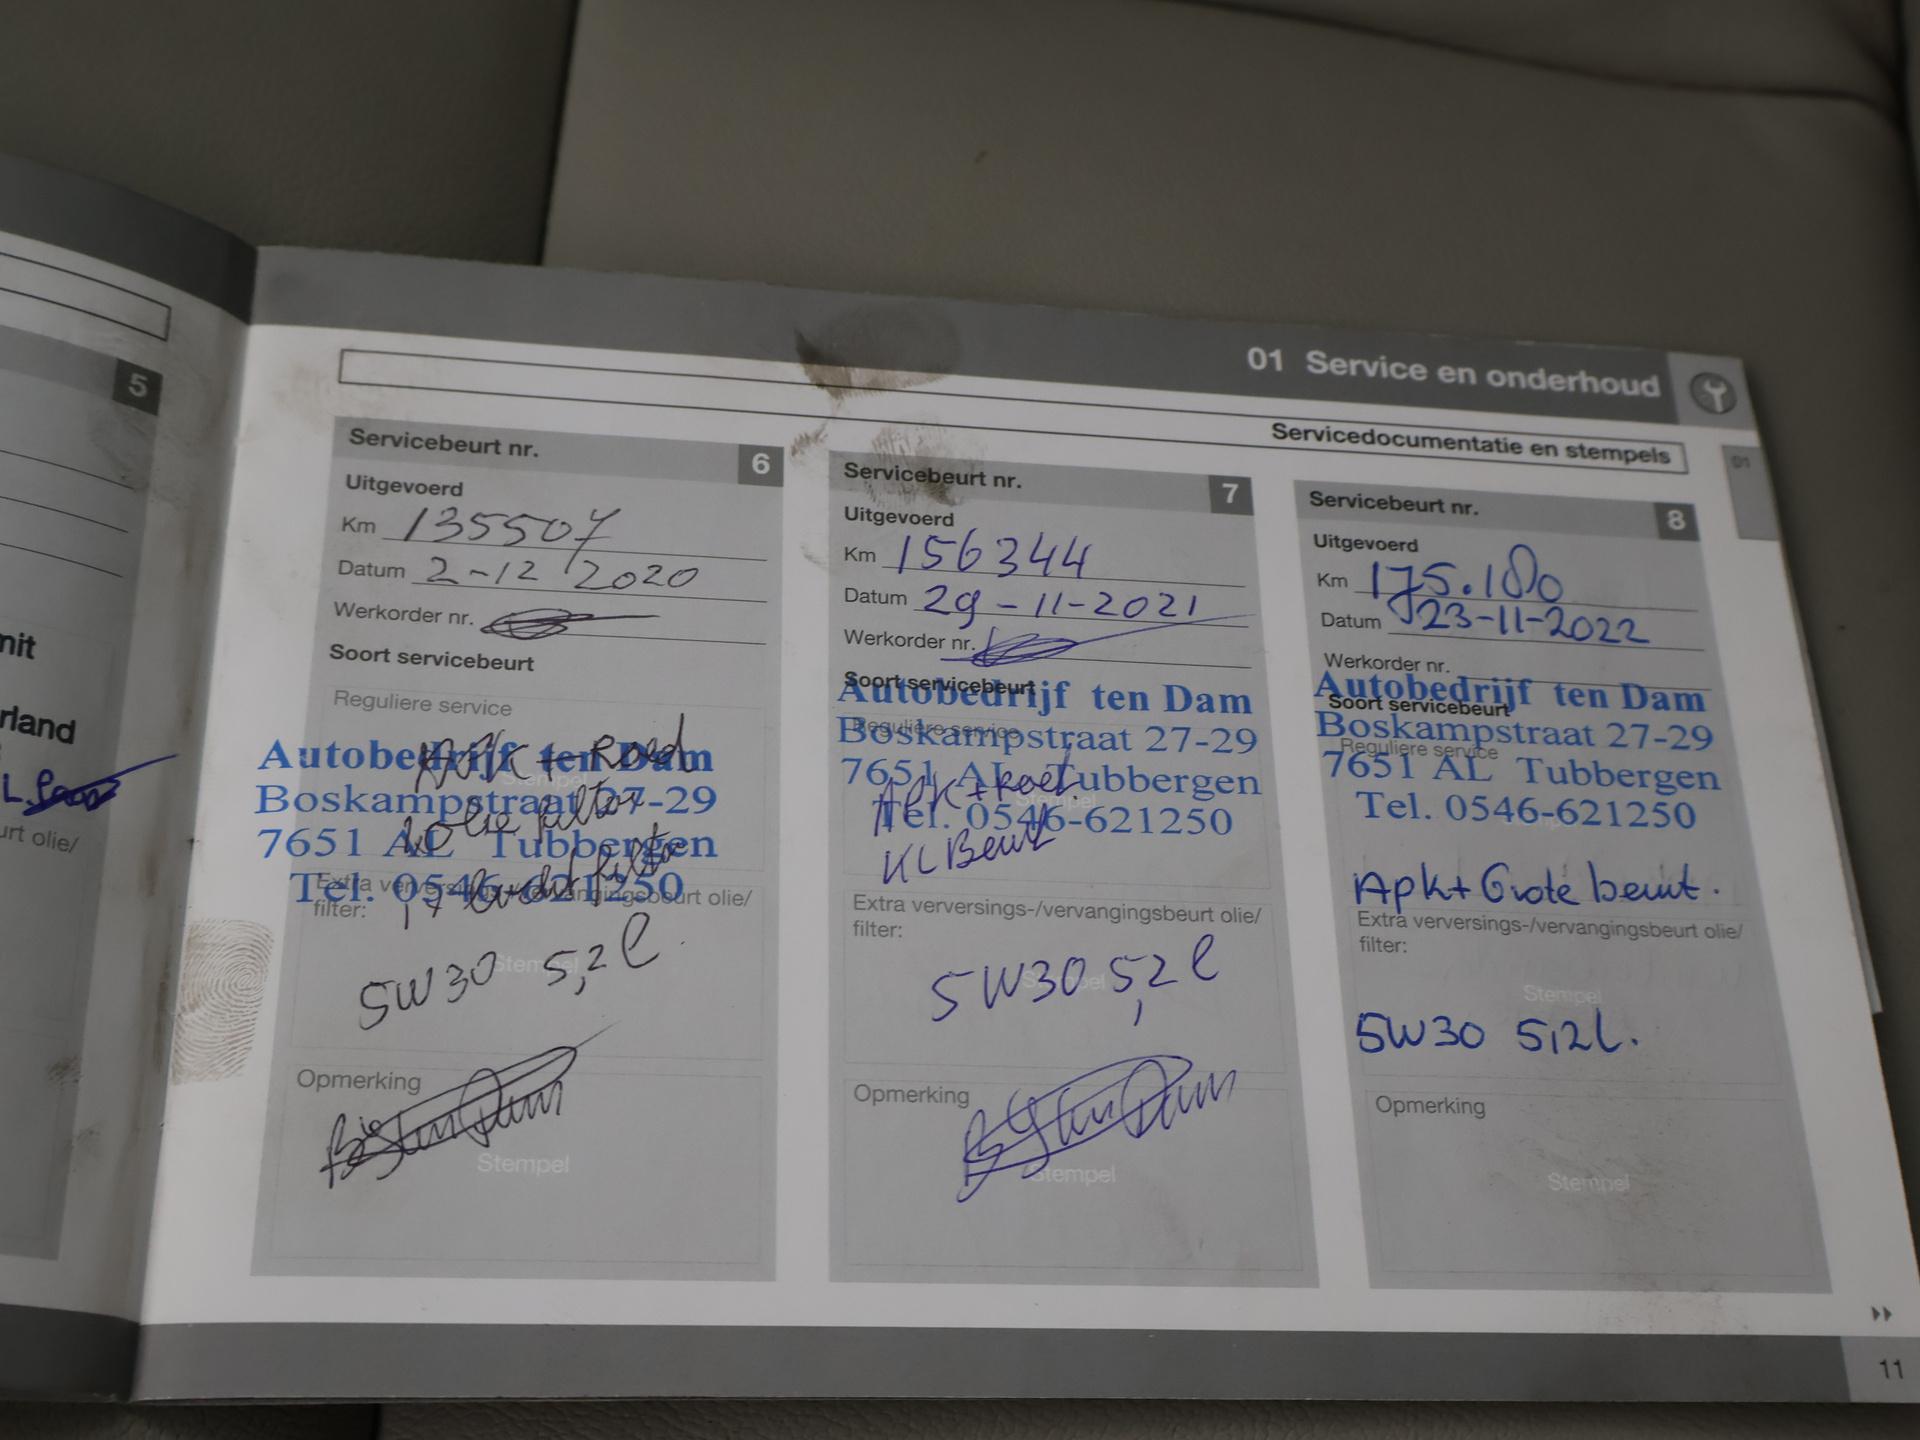 5
nit
rland
urt olie/
01 Service en onderhoud
Servicedocumentatie en stempels
01
Servicebeurt nr. 6
Uitgevoerd
Km 135507
Datum 2-12 2020
Werkorder nr.
Soort servicebeurt
Reguliere service
Autobedrijf ten Dam
Boskampstraat 27-29
7651 AL Tubbergen
Tel. 0546-621250
APK + Roet
olie filter
Extra verversings-/vervangingsbeurt olie/
filter:
Stempel
5W30 5,2l
Opmerking
Stempel
Servicebeurt nr. 7
Uitgevoerd
Km 156344
Datum 29-11-2021
Werkorder nr.
Soort servicebeurt
Reguliere service
Autobedrijf ten Dam
Boskampstraat 27-29
7651 AL Tubbergen
Tel. 0546-621250
APK + Roet
KL Beurt
Extra verversings-/vervangingsbeurt olie/
filter:
Stempel
5W30 5,2l
Opmerking
Stempel
Servicebeurt nr. 8
Uitgevoerd
Km 175.180
Datum 23-11-2022
Werkorder nr.
Soort servicebeurt
Reguliere service
Autobedrijf ten Dam
Boskampstraat 27-29
7651 AL Tubbergen
Tel. 0546-621250
Apk + Grote beurt.
Extra verversings-/vervangingsbeurt olie/
filter:
Stempel
5W30 5,2l.
Opmerking
Stempel
11